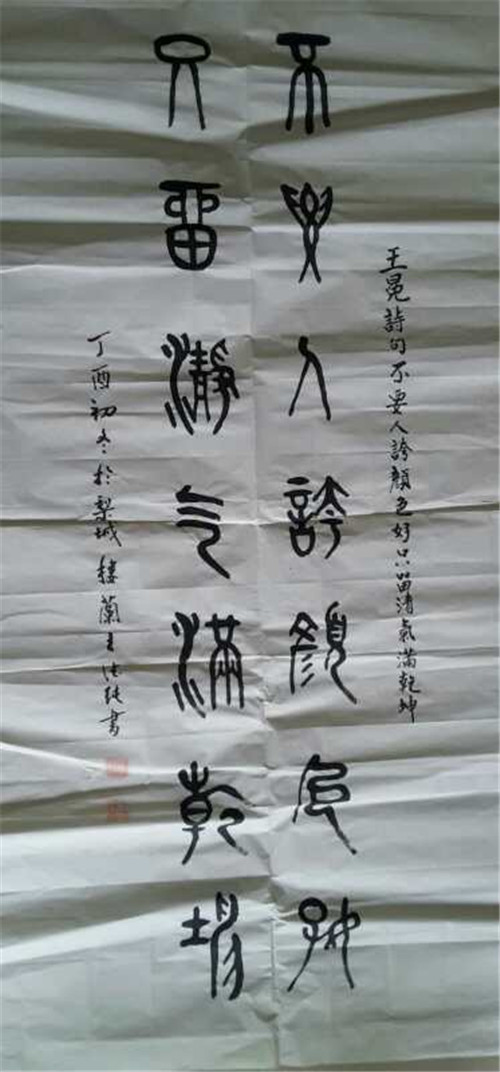 王冕詩句不要人誇顏色好只留清氣滿乾坤
不要人誇顏色好
只留瀞气滿乾坤
丁酉初冬於梨城樓蘭書